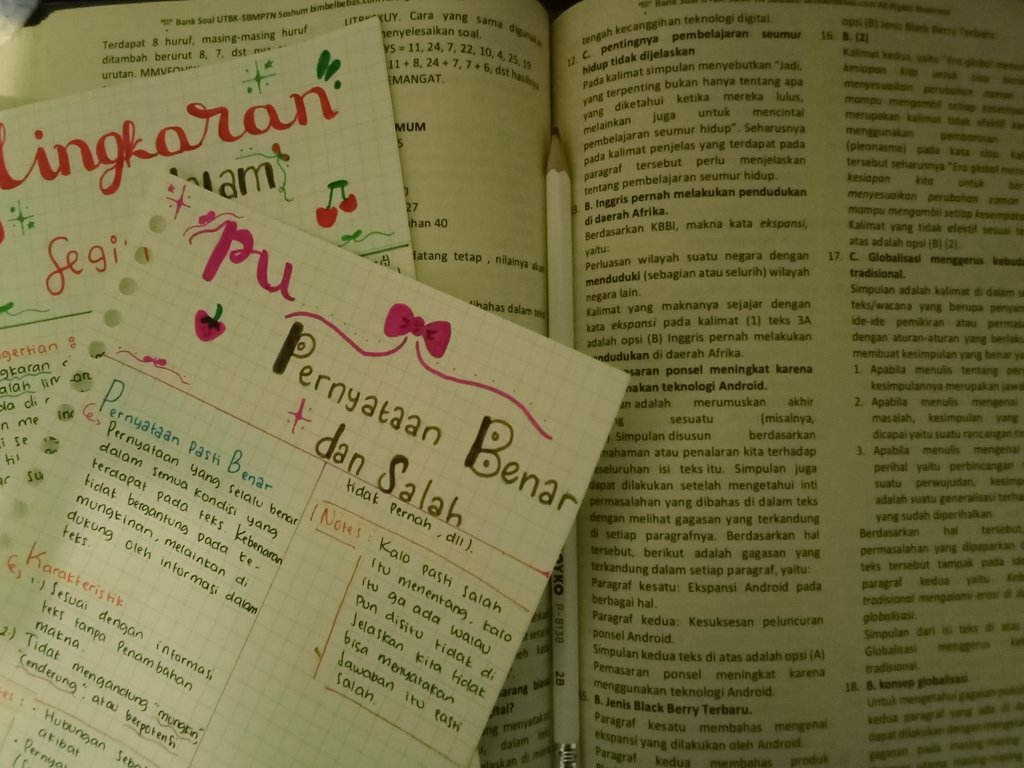 "III" Bank Soal UTBK-SBMPTN Soshum bimbelbebas.com
Terdapat 8 huruf, masing-masing huruf
ditambah berurut 8, 7, dst
urutan.
Cara yang sama digunakan
menyelesaikan soal.
YS = 11, 24, 7, 22, 10, 4, 25, 15
11 + 8, 24 + 7, 7 + 6, dst hasilnya
EMANGAT.
MUM
27
han 40
datang tetap , nilainya akan
dibahas dalam teks
lingkaran
dalam
Segi
ngertian :
PU
Pernyataan Benar
dan Salah
Pernyataan Pasti Benar
Pernyataan yang selalu benar
dalam semua kondisi yang
terdapat pada teks. Kebenaran
tidak bergantung pada ke-
mungkinan, melainkan di
dukung oleh informasi dalam
teks.
Karakteristik
1.) Sesuai dengan informasi
teks tanpa Penambahan
makna
2.) Tidak mengandung "mungkin,
"cenderung", atau berpotensi
Hubungan sebab
akibat
tidak pernah, dll).
Notes : Kalo pasti salah
itu menentang, kalo
itu ga ada walau
pun disitu tidak di
jelaskan kita tidak
bisa menyatakan
jawaban itu pasti
salah.
JOYKO P-81138 2B
tengah kecanggihan teknologi digital.
12. C. pentingnya pembelajaran seumur
hidup tidak dijelaskan
Pada kalimat simpulan menyebutkan "Jadi,
yang terpenting bukan hanya tentang apa
yang diketahui ketika mereka lulus,
melainkan juga untuk mencintai
pembelajaran seumur hidup". Seharusnya
pada kalimat penjelas yang terdapat pada
paragraf tersebut perlu menjelaskan
tentang pembelajaran seumur hidup.
B. Inggris pernah melakukan pendudukan
di daerah Afrika.
Berdasarkan KBBI, makna kata ekspansi,
yaitu:
Perluasan wilayah suatu negara dengan
menduduki (sebagian atau selurih) wilayah
negara lain.
Kalimat yang maknanya sejajar dengan
kata ekspansi pada kalimat (1) teks 3A
adalah opsi (B) Inggris pernah melakukan
pendudukan di daerah Afrika.
saran ponsel meningkat karena
nakan teknologi Android.
n adalah merumuskan akhir
sesuatu (misalnya,
. Simpulan disusun berdasarkan
mahaman atau penalaran kita terhadap
seluruhan isi teks itu. Simpulan juga
dapat dilakukan setelah mengetahui inti
permasalahan yang dibahas di dalam teks
dengan melihat gagasan yang terkandung
di setiap paragrafnya. Berdasarkan hal
tersebut, berikut adalah gagasan yang
terkandung dalam setiap paragraf, yaitu:
Paragraf kesatu: Ekspansi Android pada
berbagai hal.
Paragraf kedua: Kesuksesan peluncuran
ponsel Android.
Simpulan kedua teks di atas adalah opsi (A)
Pemasaran ponsel meningkat karena
menggunakan teknologi Android.
15. B. Jenis Black Berry Terbaru.
Paragraf kesatu membahas mengenai
ekspansi yang dilakukan oleh Android.
Paragraf kedua membahas produk
opsi (B) Jenis Black Berry Terbaru.
16. B. (2)
Kalimat kedua, yaitu "Era global
kesiapan kita untuk siap
menyesuaikan perubahan zaman
mampu mengambil setiap kesempatan
merupakan kalimat tidak efektif
menggunakan pemborosan
(pleonasme) pada kata siap.
tersebut seharusnya "Era global
kesiapan kita untuk
menyesuaikan perubahan zaman
mampu mengambil setiap kesempatan
Kalimat yang tidak efektif sesuai
atas adalah opsi (B) (2).
17. C. Globalisasi menggerus
tradisional.
Simpulan adalah kalimat di dalam
teks/wacana yang berupa
ide-ide pemikiran atau
dengan aturan-aturan yang
membuat kesimpulan yang benar
1. Apabila menulis tentang
kesimpulannya merupakan
2. Apabila menulis mengenai
masalah, kesimpulan yang
dicapai yaitu suatu rancangan
3. Apabila menulis mengenai
perihal yaitu perbincangan
suatu perwujudan,
adalah suatu generalisasi
yang sudah diperihalkan.
Berdasarkan hal tersebut,
permasalahan yang dipaparkan
teks tersebut tampak pada
paragraf kedua yaitu
tradisional mengalami erosi di
globalisasi.
Simpulan dari isi teks di atas
Globalisasi menggerus
tradisional.
18. B. konsep globalisasi
Untuk mengetahui gagasan
kedua paragraf yang ada di
dapat dilakukan dengan
gagasan pada masing-masing